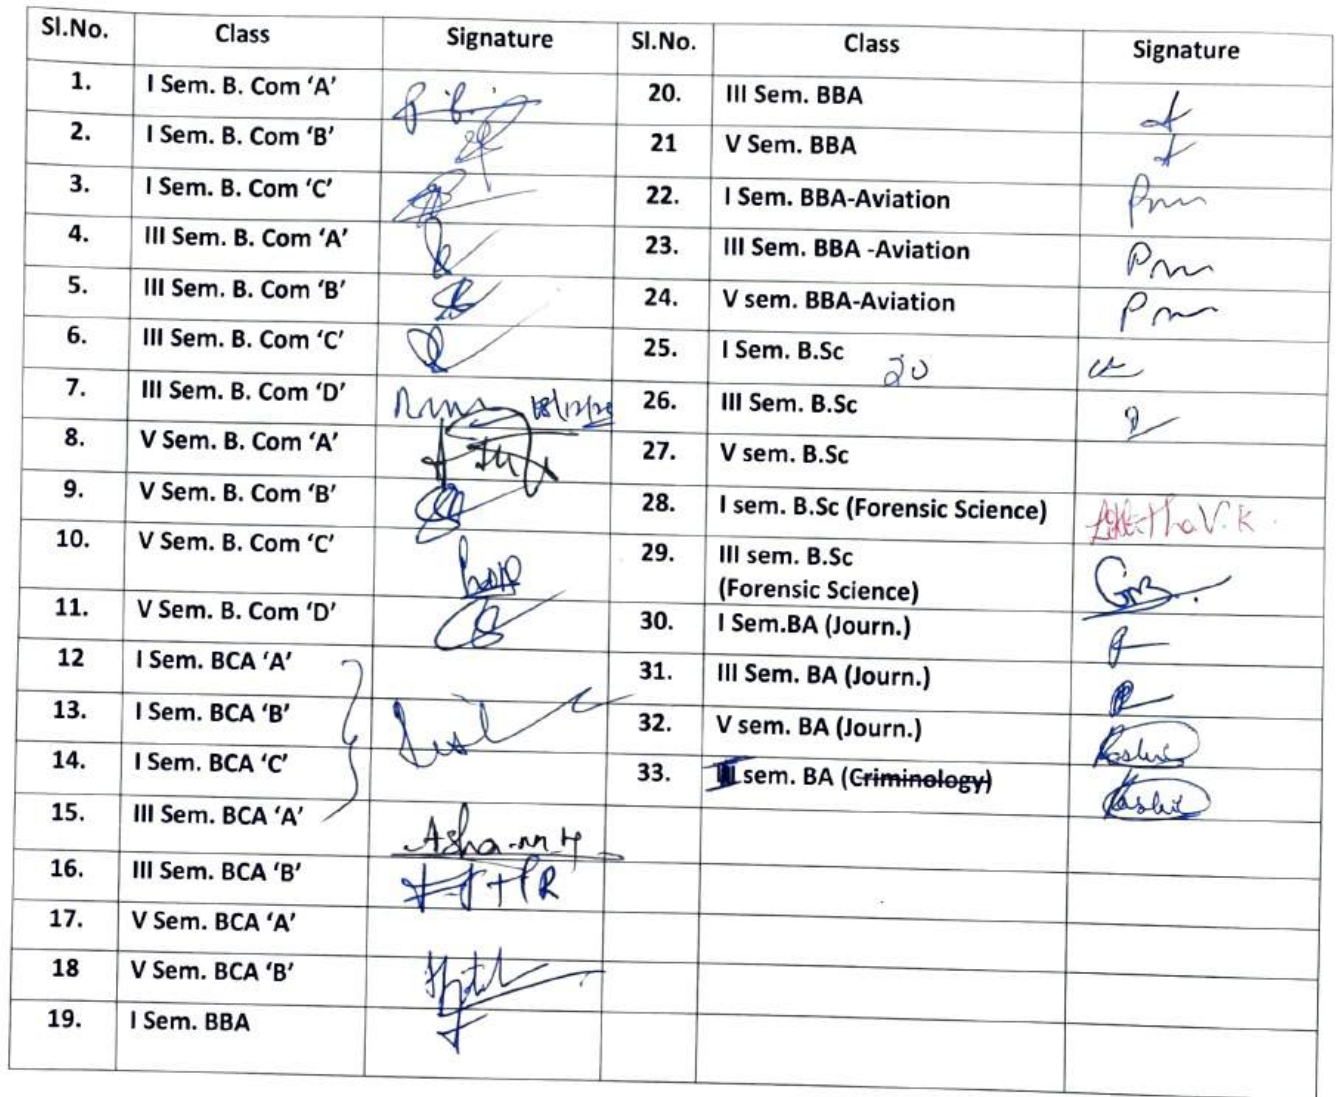 Sl.No. Class Signature Sl.No. Class Signature
1. I Sem. B. Com ‘A’ 20. III Sem. BBA
2. I Sem. B. Com ‘B’ 21 V Sem. BBA
3. I Sem. B. Com ‘C’ 22. I Sem. BBA-Aviation
4. III Sem. B. Com ‘A’ 23. III Sem. BBA -Aviation
5. III Sem. B. Com ‘B’ 24. V sem. BBA-Aviation
6. III Sem. B. Com ‘C’ 25. I Sem. B.Sc 20
7. III Sem. B. Com ‘D’ 26. III Sem. B.Sc
8. V Sem. B. Com ‘A’ 27. V sem. B.Sc
9. V Sem. B. Com ‘B’ 28. I sem. B.Sc (Forensic Science)
10. V Sem. B. Com ‘C’ 29. III sem. B.Sc
(Forensic Science)
11. V Sem. B. Com ‘D’ 30. I Sem.BA (Journ.)
12 I Sem. BCA ‘A’ 31. III Sem. BA (Journ.)
13. I Sem. BCA ‘B’ 32. V sem. BA (Journ.)
14. I Sem. BCA ‘C’ 33. sem. BA (Criminology)
15. III Sem. BCA ‘A’
16. III Sem. BCA ‘B’
17. V Sem. BCA ‘A’
18 V Sem. BCA ‘B’
19. I Sem. BBA